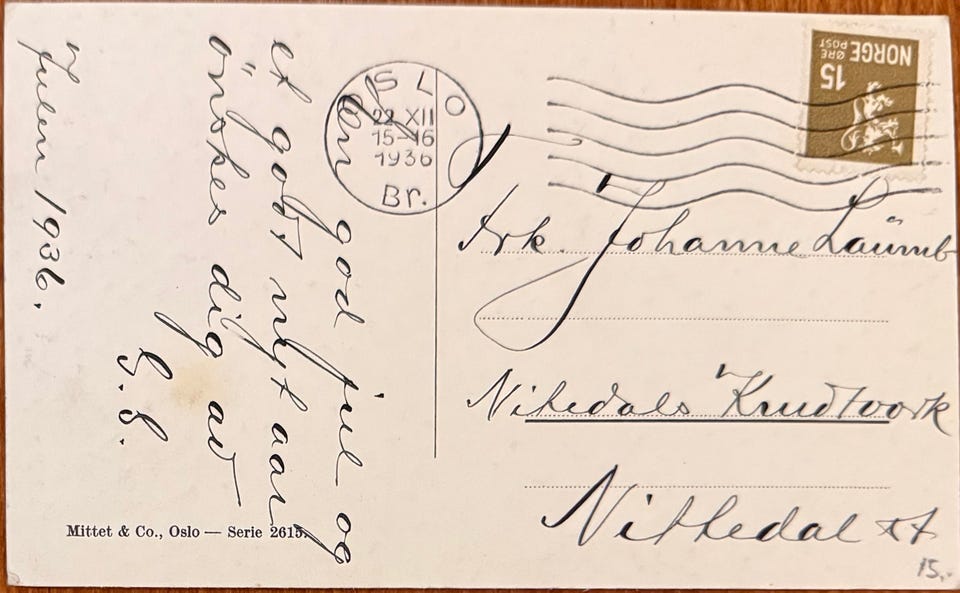 En god jul og
et godt nyt aar
önskes dig av
G. G.
Julen 1936.
OSLO
22 XII
15-16
1936
Br.
NORGE
15 ØRE
POST
Frk. Johanne
Nitedals Krudtværk
Nittedal st
15,-
Mittet & Co., Oslo — Serie 2615.